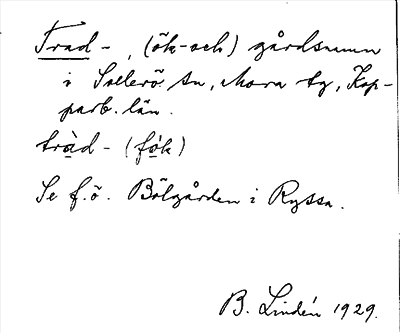 Trad-, (ök- och) gårdsnamn
i Sollerö sn, Mora tg, Kop-
parb. län.
tràd- (fö̀k)
Se f.ö. Bölgården i Ryssa.
B. Lindén 1929.